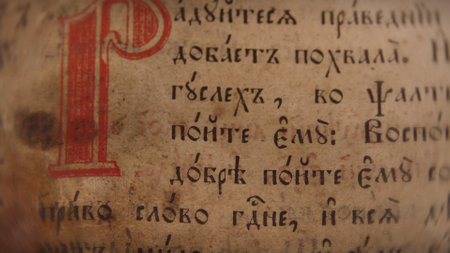 Ра́дꙋйтесѧ пра́ведниі
доба́етъ похвала̀.
гꙋ́слехъ, во ѱалти
по́йте є҆мꙋ̀: Воспо
до́брѣ по́йте є҆мꙋ̀ со
пра́во сло́во гдⷭ҇не, и҆ всѧ̀